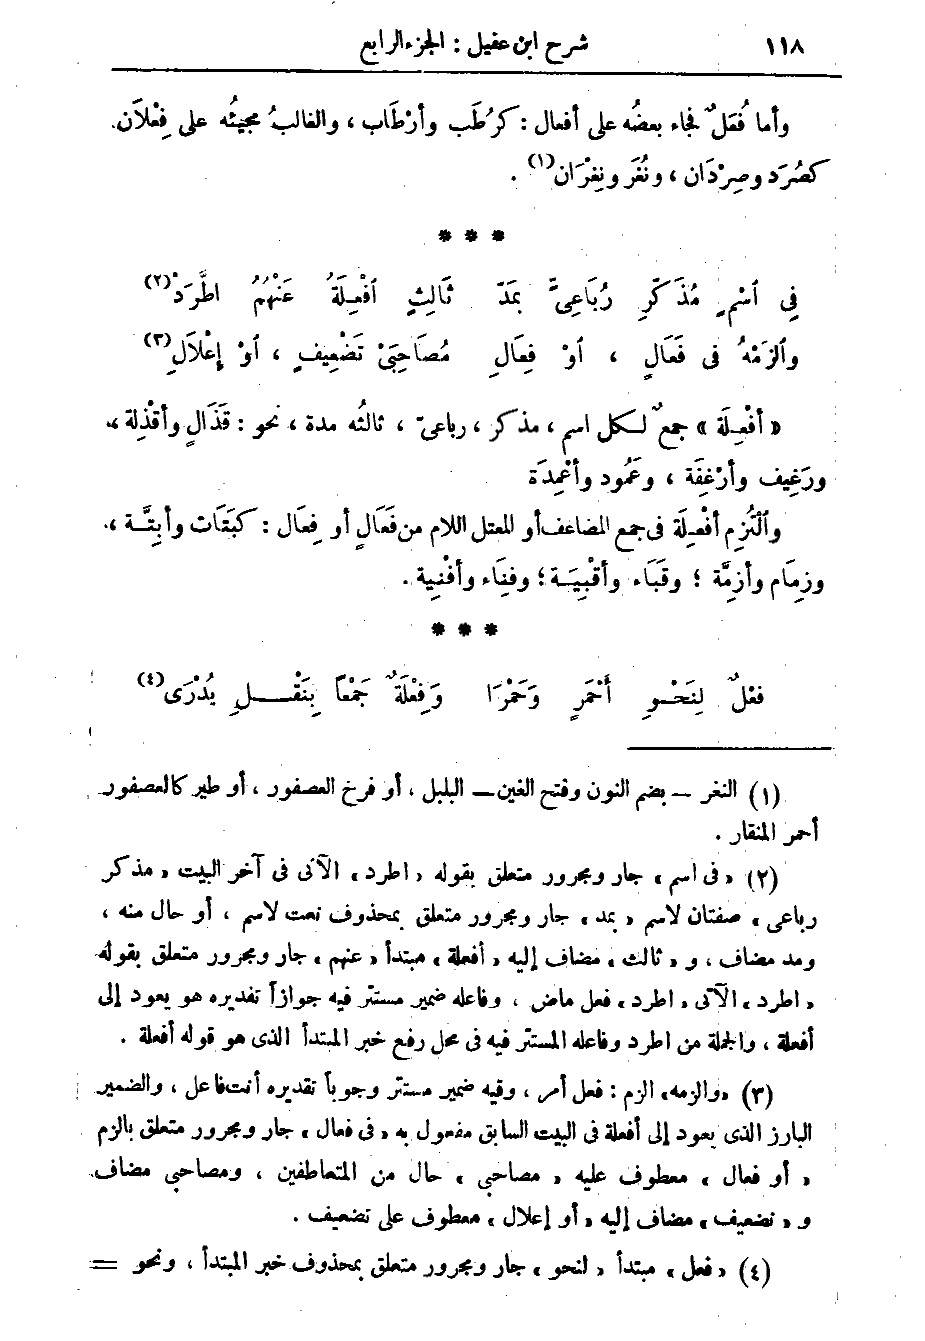 ١١٨ شرح ابن عقيل : الجزء الرابع
وأما فُعَلٌ فجاء بعضُه على أفعال : كرُطَب وأرْطَاب ، والغالبُ مجيئُه على فِعْلَان.
كصُرَد وصِرْدَان ، ونُغَر ونِغْرَان (١) .
* * *
فِى ٱسْمٍ مُذَكَّرٍ رُبَاعِىٍّ بمَدّ ثَالِثٍ ٱفْعِلَةُ عَنْهُمُ اطَّرَدْ (٢)
وٱلزَمْهُ فى فَعَالٍ ، أوْ فِعَالِ مُصَاحِبَىْ تَضْعِيفٍ ، أوْ إِعْلَالِ (٣)
« أفْعِلَة » جمعٌ لـكل اسم ، مذكر ، رباعىّ ، ثالثُه مدة ، نحو : قَذَالٍ وأقْذِلة ،
ورَغِيف وأرْغفَة ، وعَمُود وأعْمِدَة
وٱلْتُزِم أفْعِلَة فى جمع المضاعف أو المعتل اللام من فَعَالٍ أو فِعَال : كبَتَات وأبِتَّة ،
وزِمَام وأزِمَّة ؛ وقَبَاء وأقْبِيَة ؛ وفِنَاء وأفْنِية .
* * *
فُعْلٌ لِنَحْوِ أَحْمَرٍ وَحَمْرَا وَفِعْلَةٌ جَمْعاً بِنَقْلٍ يُدْرَى (٤)
(١) النغر — بضم النون وفتح الغين — البلبل ، أو فرخ العصفور ، أو طير كالعصفور
أحمر المنقار .
(٢) « فى اسم » جار ومجرور متعلق بقوله « اطرد » الآتى فى آخر البيت « مذكر
رباعى » صفتان لاسم « بمد » جار ومجرور متعلق بمحذوف نعت لاسم ، أو حال منه ،
ومد مضاف ، و « ثالث » مضاف إليه « أفعلة » مبتدأ « عنهم » جار ومجرور متعلق بقوله
« اطرد » الآتى « اطرد » فعل ماض ، وفاعله ضمير مستتر فيه جوازاً تقديره هو يعود إلى
أفعلة ، والجملة من اطرد وفاعله المستتر فيه فى محل رفع خبر المبتدأ الذى هو قوله أفعلة .
(٣) « والزمه » الزم : فعل أمر ، وفيه ضمير مستتر وجوباً تقديره أنت فاعل ، والضمير
البارز الذى يعود إلى أفعلة فى البيت السابق مفعول به « فى فعال » جار ومجرور متعلق بالزم
« أو فعال » معطوف عليه « مصاحبى » حال من المتعاطفين ، ومصاحبى مضاف
و « تضعيف » مضاف إليه « أو إعلال » معطوف على تضعيف .
(٤) « فعل » مبتدأ « لنحو » جار ومجرور متعلق بمحذوف خبر المبتدأ ، ونحو =